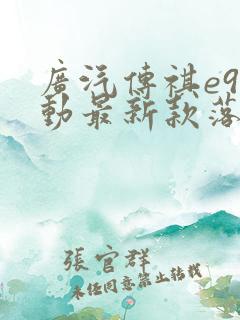 廣汽傳祺e9
動最新款落
張官群
未經同意禁止轉載